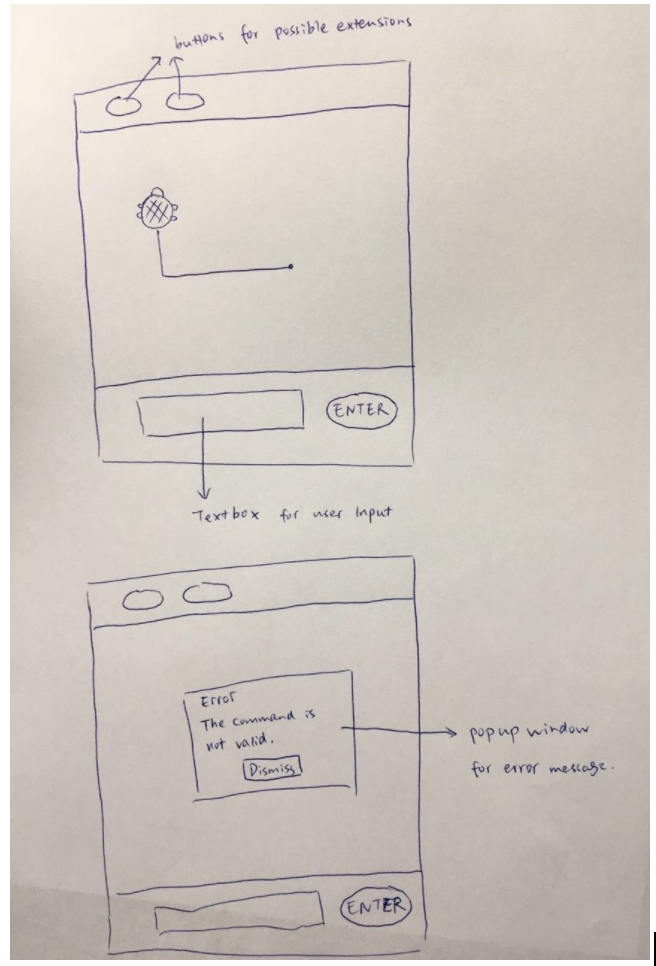 buttons for possible extensions
ENTER
Textbox for user Input
Error
The command is
not valid.
Dismiss
popup window
for error message.
ENTER